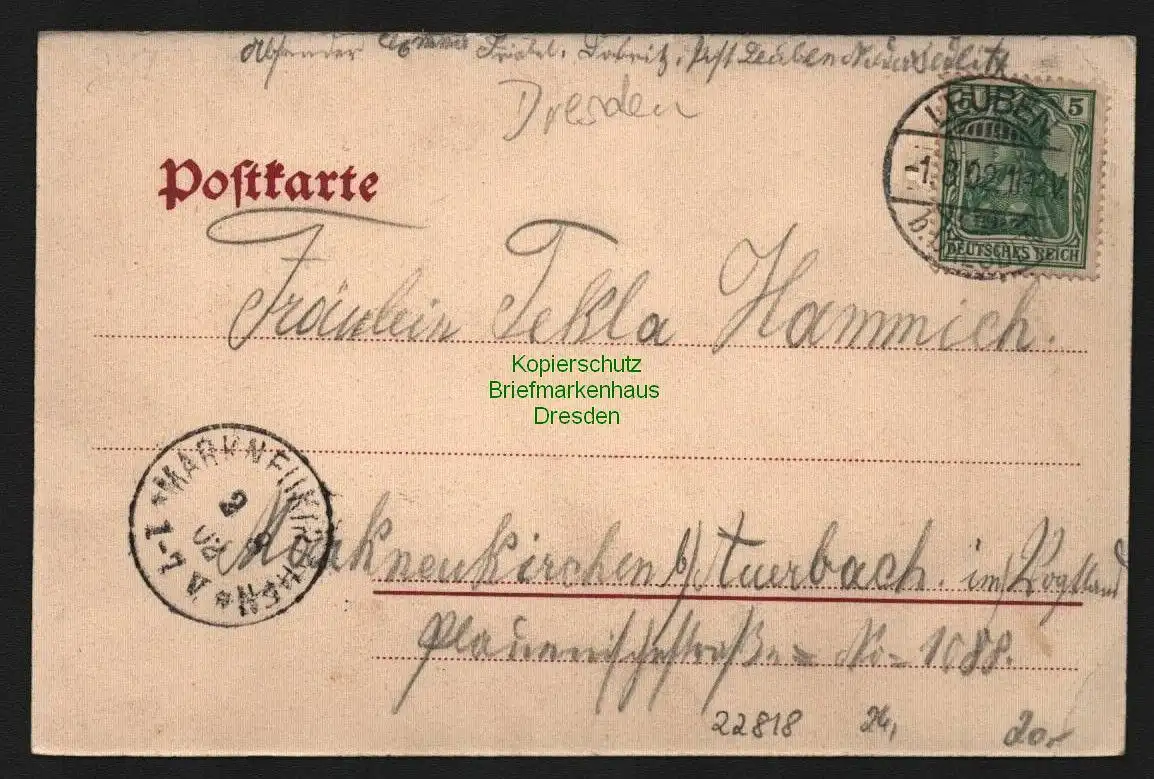 Absender Friedel, Dobritz, Post Leuben Niedersedlitz
Dresden
Postkarte
5 5
LEUBEN
-1.8.02.11-12V.
DEUTSCHES REICH
Fräulein Tekla Hammich.
Kopierschutz
Briefmarkenhaus
Dresden
*MARKNEUKIRCHEN*
2
8
02
Markneukirchen b/ Auerbach. im Vogtland
Plauenischestraße = No = 1088.
22818 24, 20,-